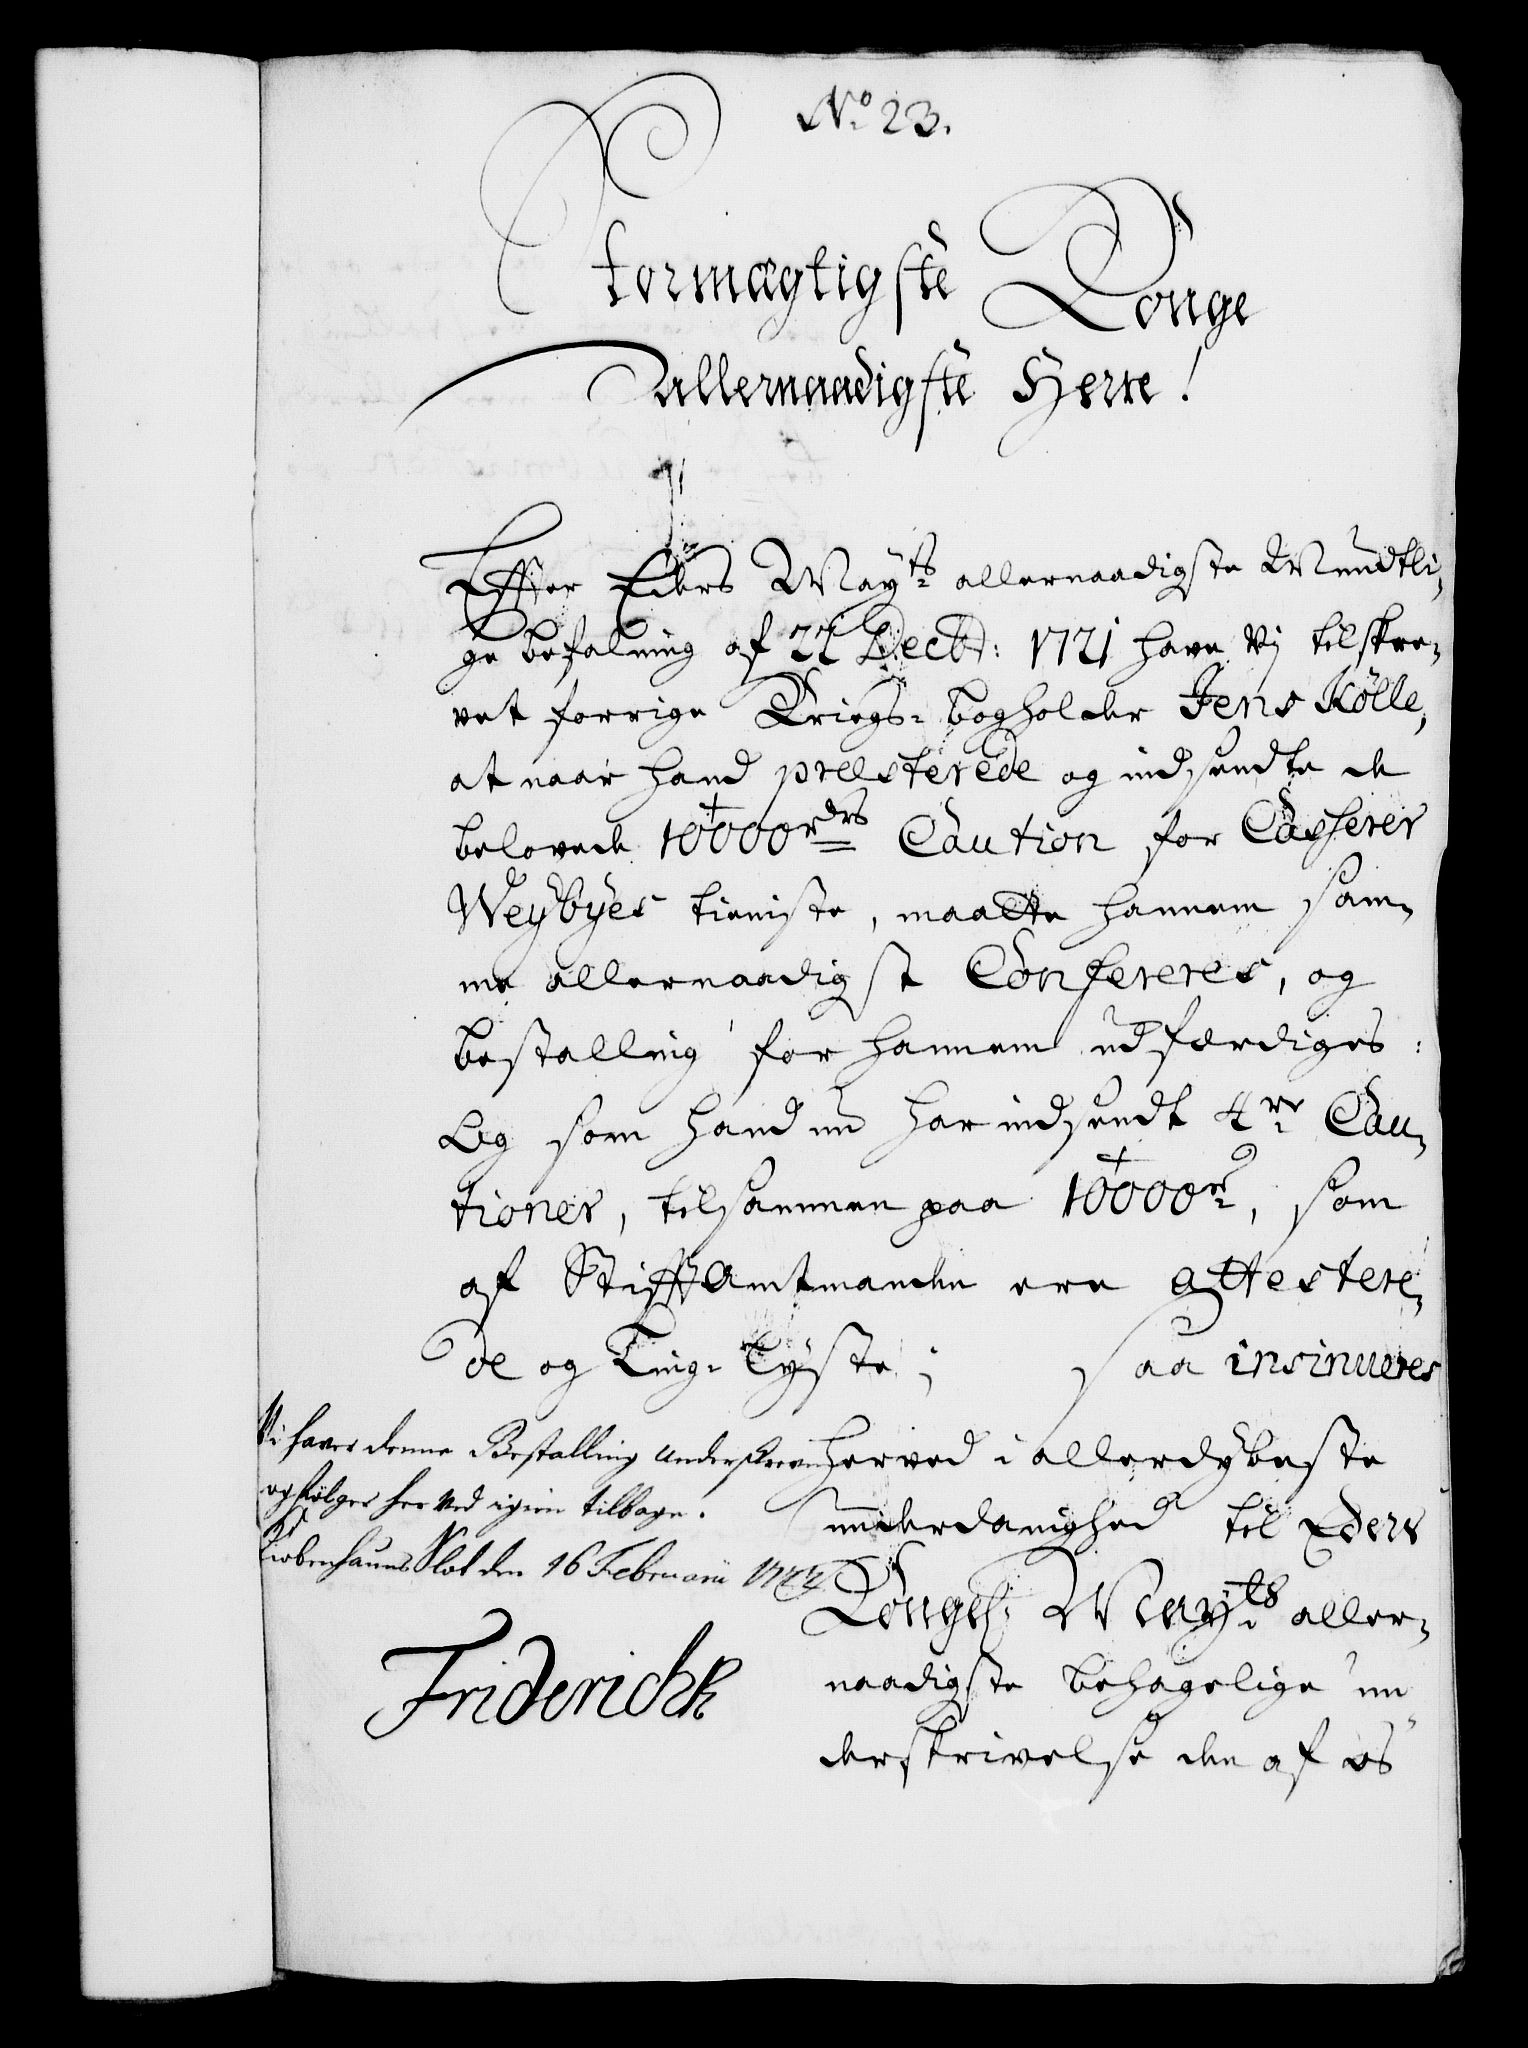 No 23.
Stormægtigste Konge
Allernaadigste Herre!
Effter Eders May:ts allernaadigste Mundtli-
ge befalning af 22 Decb: 1721 have Vj tilskre-
vet forrige Kriegs-bogholder Jens Kölle,
at naar hand præsterede og indsendte de
belovede 10000 rdrs Caution for Casserer
Weybyes tieniste, maatte hannem sam-
me allernaadigst Confereres, og
bestalling for hannem udfærdiges:
Og som hand nu har indsendt 4re Cau-
tioner, tilsammen paa 10000 r, som
af StifftAmtmanden ere attestere-
de og Ting-Lyste; saa insinueres
herved i allerdybeste
underdanighed til Eders
Kongel: May:ts aller-
naadigste behagelige un-
derskrivelse den af os
Vi haver denne Bestalling underskreven
og følger her ved igien tilbage.
Kiøbenhauns Slot den 16 Februarii 1722
Friderich R